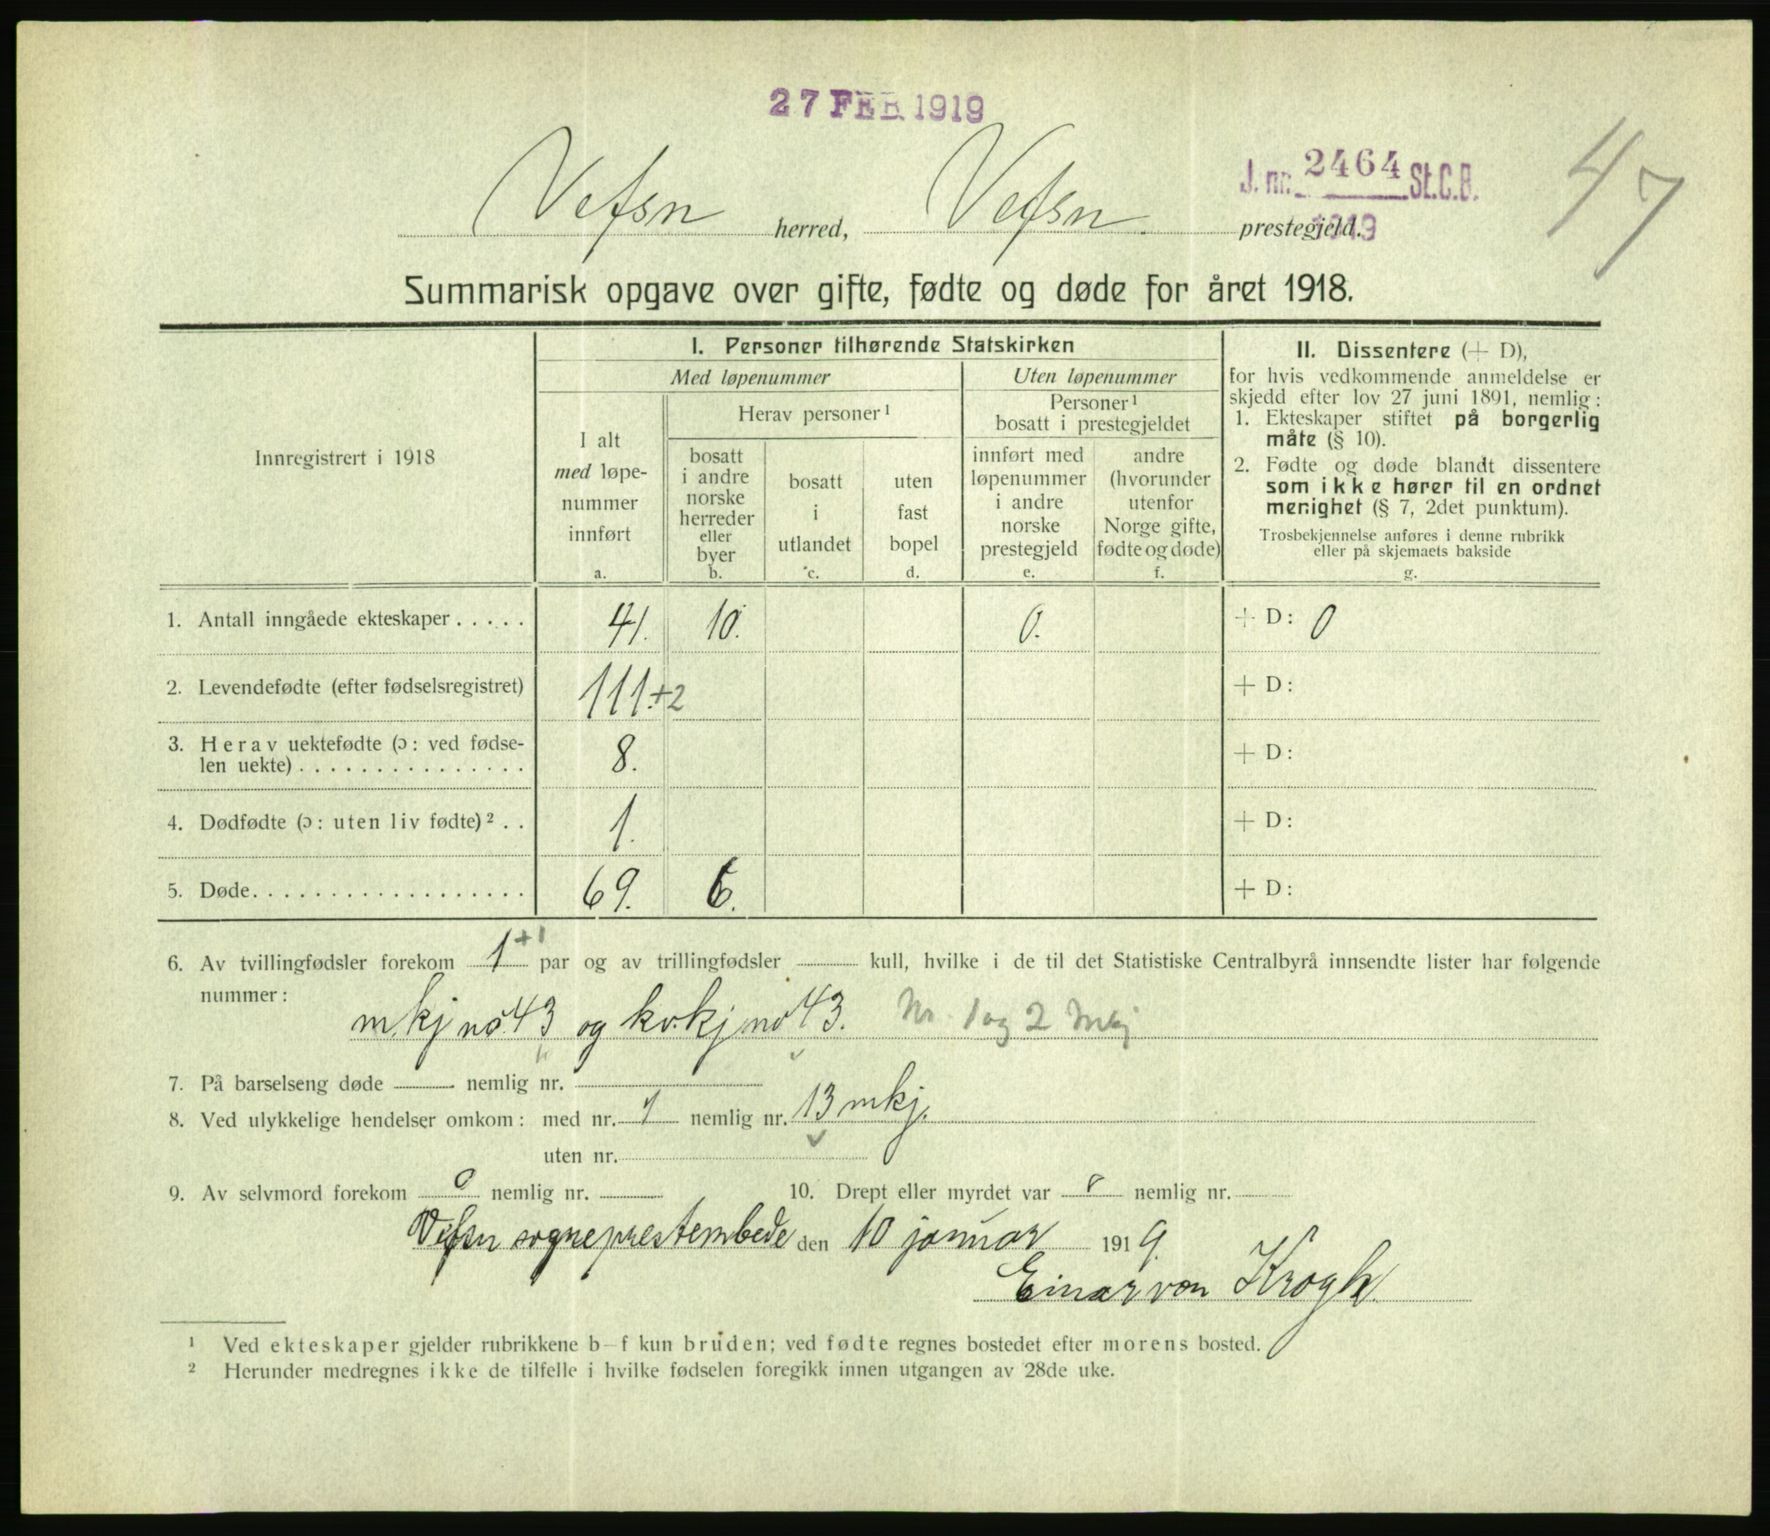 27 FEB. 1919
J. nr. 2464 St.C.B.
1919
47
Vefsn herred, Vefsn prestegjeld.
Summarisk opgave over gifte, fødte og døde for året 1918.
Innregistrert i 1918
I. Personer tilhørende Statskirken
Med løpenummer
Uten løpenummer
I alt
med løpe-
nummer
innført
a.
Herav personer¹
bosatt
i andre
norske
herreder
eller
byer
b.
bosatt
i
utlandet
c.
uten
fast
bopel
d.
Personer¹
bosatt i prestegjeldet
innført med
løpenummer
i andre
norske
prestegjeld
e.
andre
(hvorunder
utenfor
Norge gifte,
fødte og døde)
f.
II. Dissentere (+ D),
for hvis vedkommende anmeldelse er
skjedd efter lov 27 juni 1891, nemlig:
1. Ekteskaper stiftet på borgerlig
måte (§ 10).
2. Fødte og døde blandt dissentere
som ikke hører til en ordnet
menighet (§ 7, 2det punktum).
Trosbekjennelse anføres i denne rubrikk
eller på skjemaets bakside
g.
1. Antall inngåede ekteskaper . . . . . 41. 10. 0. + D: 0
2. Levendefødte (efter fødselsregistret) 111.+2 + D:
3. Herav uektefødte (ɔ: ved fødse-
len uekte) . . . . . . . . . . . . . . . 8. + D:
4. Dødfødte (ɔ: uten liv fødte)² . . 1. + D:
5. Døde. . . . . . . . . . . . . . . . . . 69. 6. + D:
6. Av tvillingfødsler forekom 1+1 par og av trillingfødsler kull, hvilke i de til det Statistiske Centralbyrå innsendte lister har følgende
nummer:
mkj no 43 og kv.kj no 43. Nr. 1 og 2 Mkj
7. På barselseng døde nemlig nr.
8. Ved ulykkelige hendelser omkom: med nr. 1 nemlig nr. 13 mkj.
uten nr.
9. Av selvmord forekom 0 nemlig nr. 10. Drept eller myrdet var 0 nemlig nr.
Vefsn sogneprestembede den 10 januar 1919.
Einar von Krogh.
¹ Ved ekteskaper gjelder rubrikkene b–f kun bruden; ved fødte regnes bostedet efter morens bosted.
² Herunder medregnes ikke de tilfelle i hvilke fødselen foregikk innen utgangen av 28de uke.